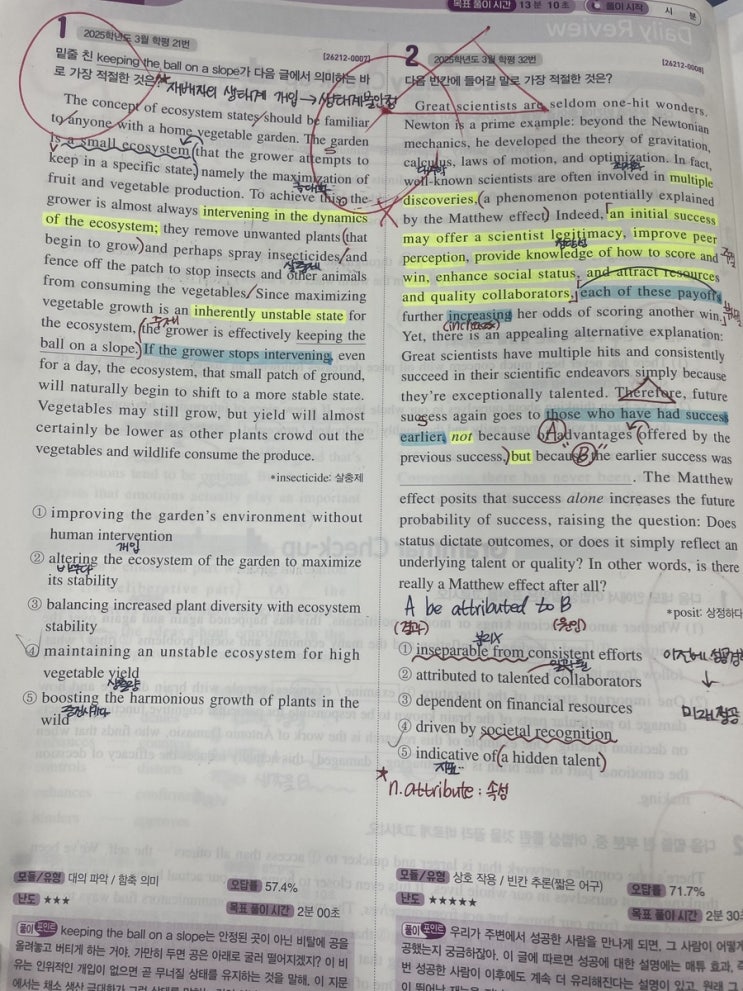 목표 풀이 시간 13 분 10 초 풀이 시작 시 분
1 2025학년도 3월 학평 21번
[26212-0007]
밑줄 친 keeping the ball on a slope가 다음 글에서 의미하는 바
로 가장 적절한 것은?
재배자의 생태계 개입 → 생태계 불안정
The concept of ecosystem states should be familiar
to anyone with a home vegetable garden. The garden
is a small ecosystem that the grower attempts to
keep in a specific state, namely the maximization of
극대화
fruit and vegetable production. To achieve this, the
grower is almost always intervening in the dynamics
of the ecosystem; they remove unwanted plants (that
begin to grow) and perhaps spray insecticides, and
살충제
fence off the patch to stop insects and other animals
from consuming the vegetables. Since maximizing
vegetable growth is an inherently unstable state for
the ecosystem, the grower is effectively keeping the
ball on a slope. If the grower stops intervening, even
for a day, the ecosystem, that small patch of ground,
will naturally begin to shift to a more stable state.
Vegetables may still grow, but yield will almost
certainly be lower as other plants crowd out the
vegetables and wildlife consume the produce.
*insecticide: 살충제
① improving the garden's environment without
human intervention
개입
② altering the ecosystem of the garden to maximize
바꾸다
its stability
③ balancing increased plant diversity with ecosystem
stability
④ maintaining an unstable ecosystem for high
vegetable yield
생산량
⑤ boosting the harmonious growth of plants in the
wild
증진시키다
모듈/유형 대의 파악 / 함축 의미
오답률 57.4%
난도 ★★★
목표 풀이 시간 2분 00초
풀이 포인트 keeping the ball on a slope는 안정된 곳이 아닌 비탈에 공을
올려놓고 버티게 하는 거야. 가만히 두면 공은 아래로 굴러 떨어지겠지? 이 비
유는 인위적인 개입이 없으면 곧 무너질 상태를 유지하는 것을 말해. 이 지문
2 2025학년도 3월 학평 32번
[26212-0008]
다음 빈칸에 들어갈 말로 가장 적절한 것은?
Great scientists are seldom one-hit wonders.
Newton is a prime example: beyond the Newtonian
mechanics, he developed the theory of gravitation,
calculus, laws of motion, and optimization. In fact,
최적화
well-known scientists are often involved in multiple
discoveries, (a phenomenon potentially explained
by the Matthew effect) Indeed, an initial success
may offer a scientist legitimacy, improve peer
perception, provide knowledge of how to score and
win, enhance social status, and attract resources
and quality collaborators, each of these payoffs
further increasing her odds of scoring another win.
(increases)
Yet, there is an appealing alternative explanation:
Great scientists have multiple hits and consistently
succeed in their scientific endeavors simply because
they're exceptionally talented. Therefore, future
success again goes to those who have had success
earlier, not because of advantages offered by the
A
previous success, but because the earlier success was
B
. The Matthew
effect posits that success alone increases the future
probability of success, raising the question: Does
status dictate outcomes, or does it simply reflect an
underlying talent or quality? In other words, is there
really a Matthew effect after all?
A be attributed to B
(결과) (원인)
*posit: 상정하다
① inseparable from consistent efforts
분리X
일관된
② attributed to talented collaborators
③ dependent on financial resources
④ driven by societal recognition
⑤ indicative of (a hidden talent)
지표
↓
미래 성공
* n. attribute : 속성
모듈/유형 상호 작용 / 빈칸 추론(짧은 어구)
오답률 71.7%
난도 ★★★★★
목표 풀이 시간 2분 30초
풀이 포인트 우리가 주변에서 성공한 사람을 만나게 되면, 그 사람이 어떻게
공했는지 궁금하잖아. 이 글에 따르면 성공에 대한 설명에는 매튜 효과,
번 성공한 사람이 이후에도 계속 더 유리해진다는 설명이 있고, 원래 그